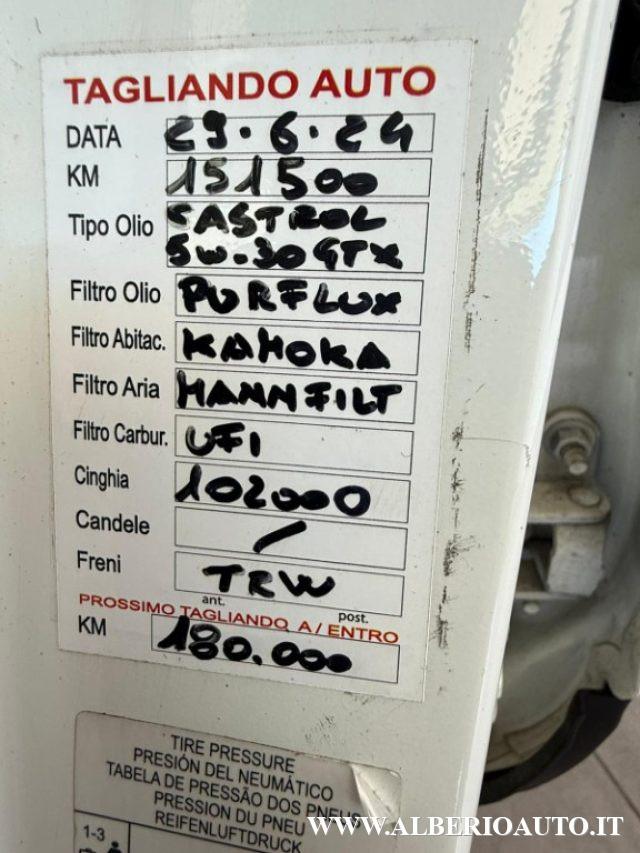 TAGLIANDO AUTO
DATA 29.6.24
KM 151500
Tipo Olio CASTROL
5W-30 GTX
Filtro Olio PURFLUX
Filtro Abitac. KAMOKA
Filtro Aria MANNFILT
Filtro Carbur. UFI
Cinghia 102000
Candele /
Freni TRW
ant. post.
PROSSIMO TAGLIANDO A / ENTRO
KM 180.000
TIRE PRESSURE
PRESIÓN DEL NEUMÁTICO
TABELA DE PRESSÃO DOS PNEUS
PRESSION DU PNEU
REIFENLUFTDRUCK
1-3
WWW.ALBERIOAUTO.IT